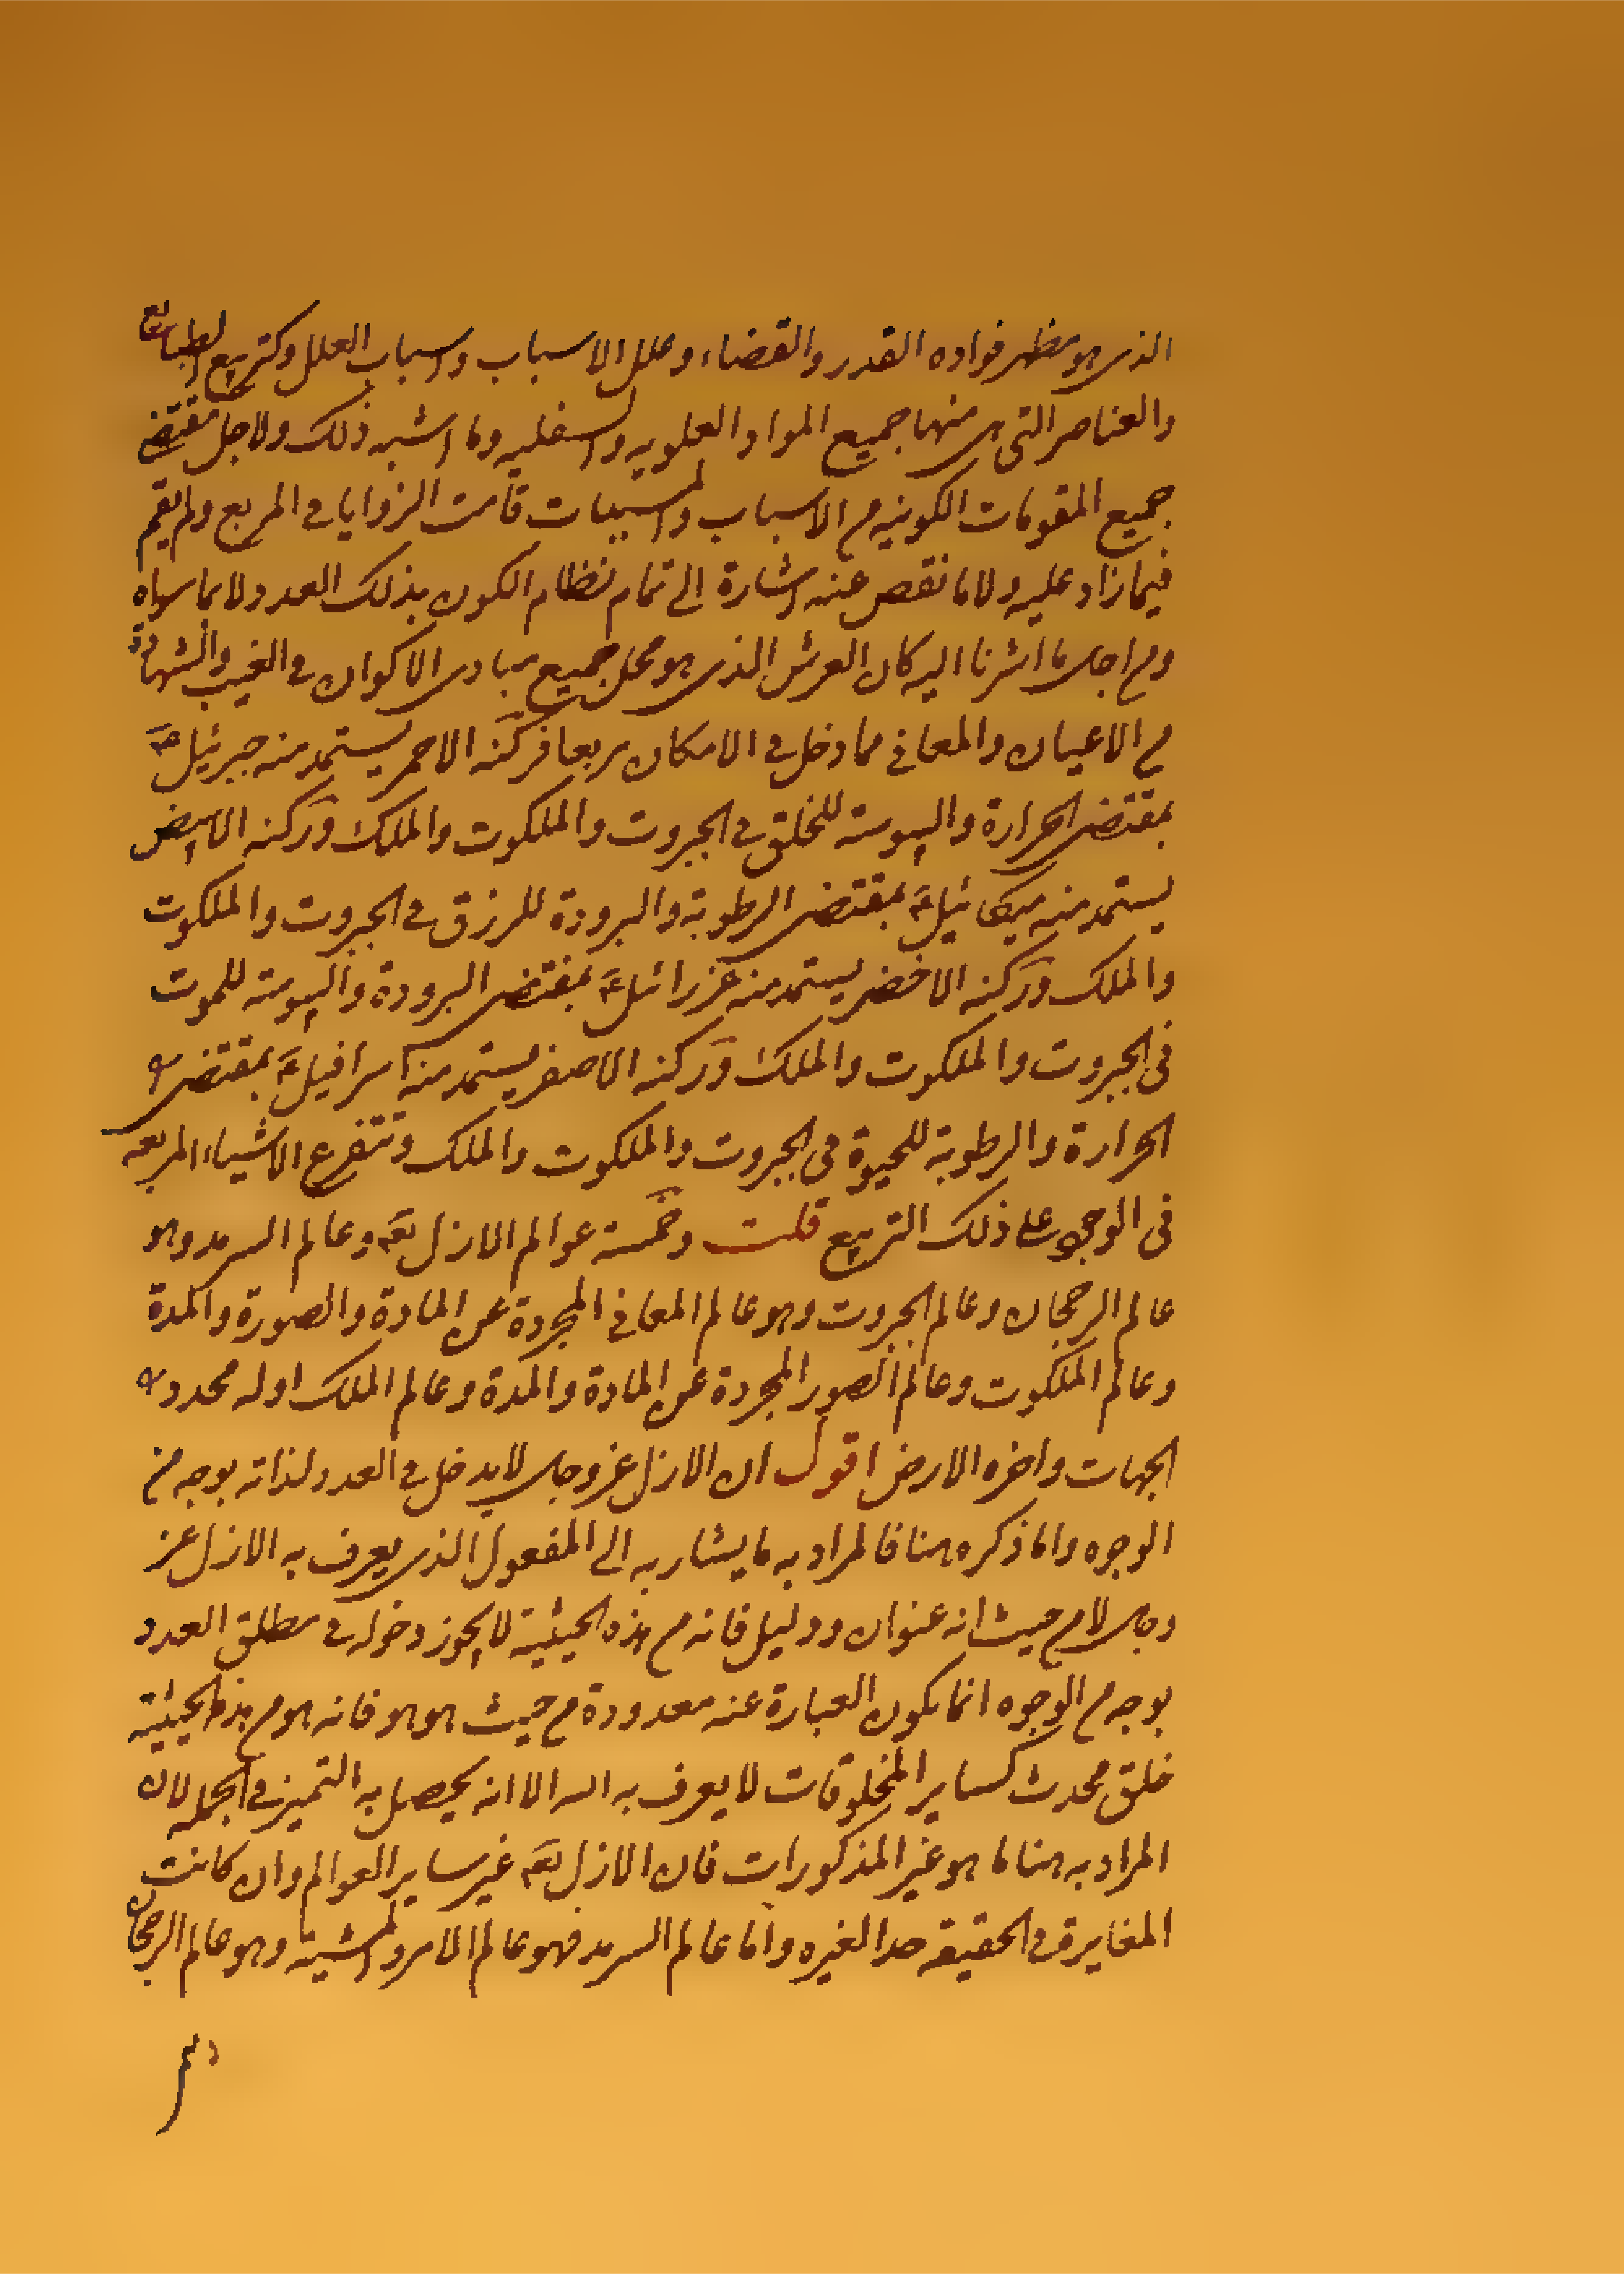 الذی هو مظهر فواده القدر والقضاء وعلل الاسباب واسباب العلل وکتربیع الطبایع
والعناصر التی هی منها جمیع المواد العلویه والسفلیه وما اشبه ذلک ولاجل مقتضی
جمیع المقومات الکونیه من الاسباب والمسببات قامت الزوایا فی المربع ولم یقم
فیما زاد علیه ولا ما نقص عنه اشارة الی تمام نظام الکون بذلک العدد ولا بما سواه
ومن اجل ما اشرنا الیه کان العرش الذی هو محل جمیع مبادی الاکوان فی الغیب والشهادة
من الاعیان والمعانی مما دخل فی الامکان مربعا فرکنه الاحمر یستمد منه جبرئیل ع
بمقتضی الحرارة والیبوسة للخلق فی الجبروت والملکوت والملک ورکنه الابیض
یستمد منه میکائیل ع بمقتضی الرطوبة والبرودة للرزق فی الجبروت والملکوت
والملک ورکنه الاخضر یستمد منه عزرائیل ع بمقتضی البرودة والیبوسة للموت
فی الجبروت والملکوت والملک ورکنه الاصفر یستمد منه اسرافیل ع بمقتضی
الحرارة والرطوبة للحیوة فی الجبروت والملکوت والملک وتتفرع الاشیاء المربعه
فی الوجود علی ذلک التربیع قلت وخمسة عوالم الازل تعه وعالم السرمد وهو
عالم الرجحان وعالم الجبروت وهو عالم المعانی المجردة عن المادة والصورة والمدة
وعالم الملکوت وعالم الصور المجردة عن المادة والمدة وعالم الملک اوله محدد
الجهات واخره الارض اقول ان الازل عز وجل لا یدخل فی العدد لذاته بوجه من
الوجوه واما ذکره هنا فالمراد به ما یشار به الی المفعول الذی یعرف به الازل عز
وجل لا من حیث انه عنوان ودلیل فانه من هذه الحیثیة لا یجوز دخوله فی مطلق العدد
بوجه من الوجوه انما یکون العبارة عنه معدودة من حیث هو هو فانه هو من هذه الحیثیة
خلق محدث کسایر المخلوقات لا یعرف به الله الا انه یحصل به التمیز فی الجمله لان
المراد به هنا ما هو غیر المذکورات فان الازل تعه غیر سایر العوالم وان کانت
المغایرة فی الحقیقة حدا لغیره واما عالم السرمد فهو عالم الامر والمشیة وهو عالم الرجحان